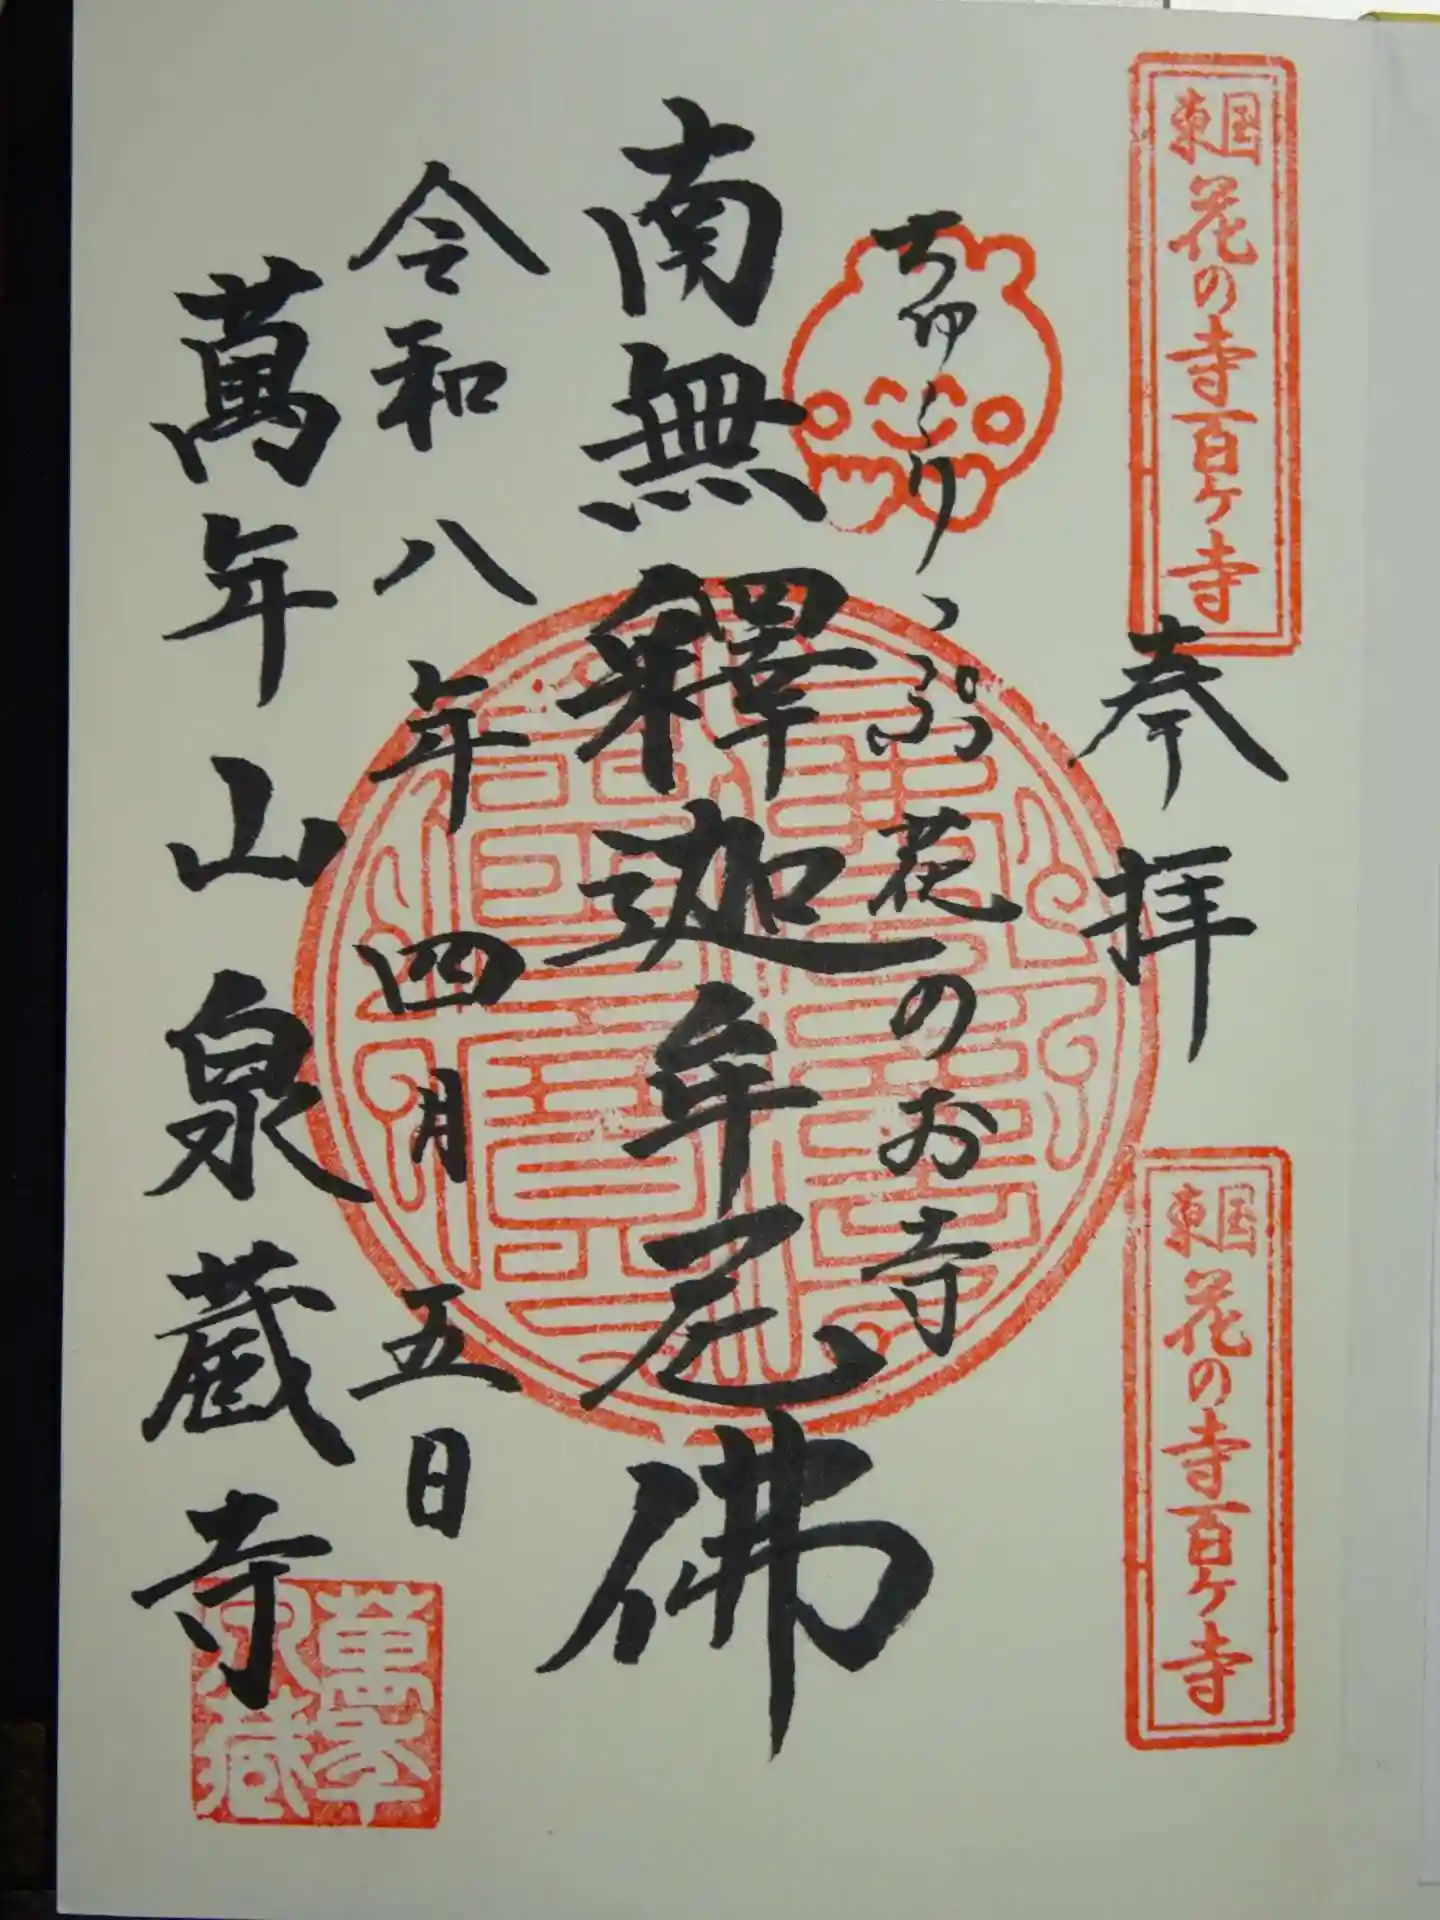 東国花の寺百ヶ寺
奉拝
東国花の寺百ヶ寺
ちゅーりっぷ花のお寺
南無釋迦牟尼佛
令和八年四月五日
萬年山泉蔵寺
萬年
泉蔵